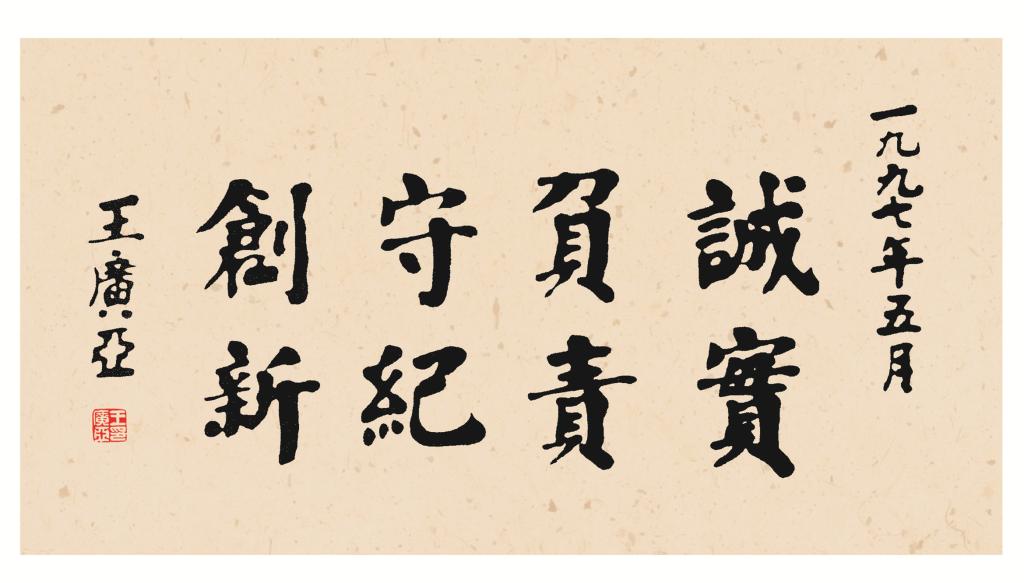 一九九七年五月
誠實
負責
守紀
創新
王廣亞